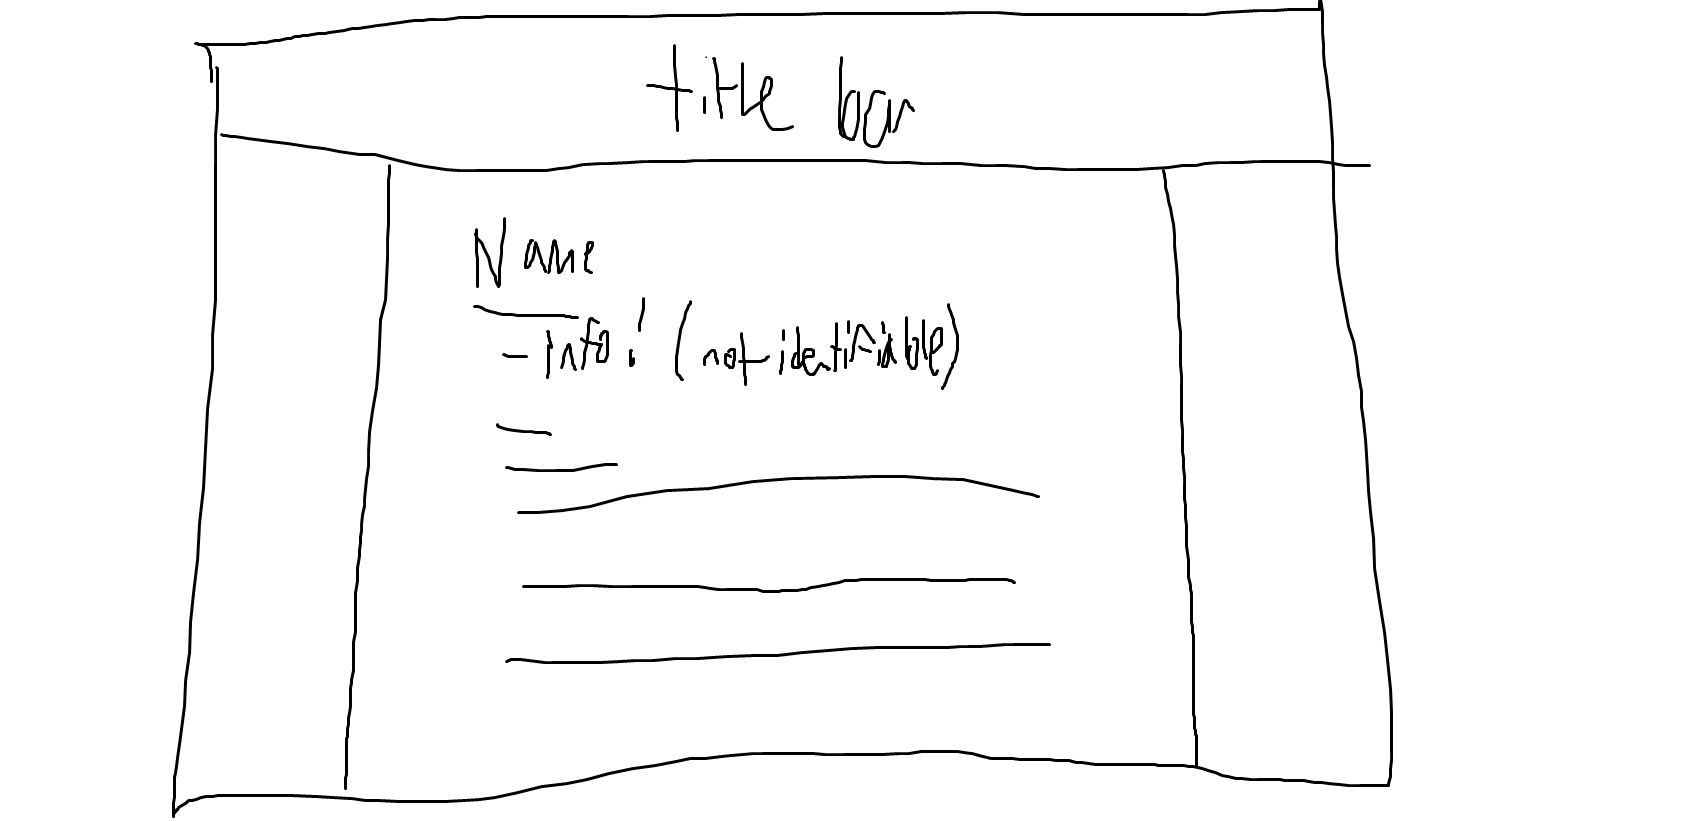 title bar
Name
- info! (not identifiable)